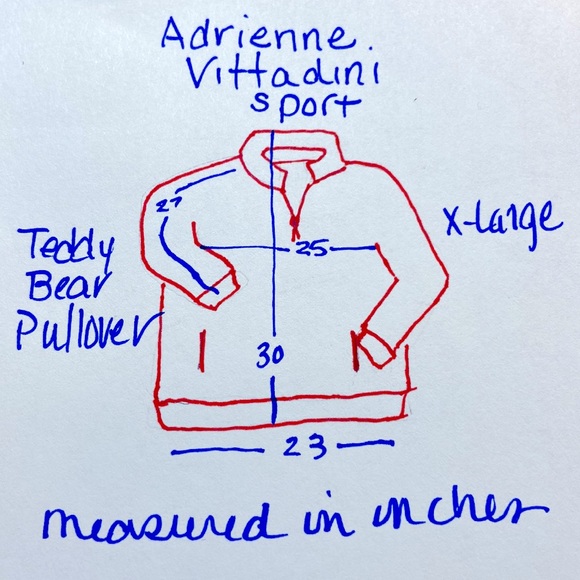 Adrienne.
Vittadini
sport
27
X-large
Teddy
Bear
Pullover
25
30
23
measured in inches